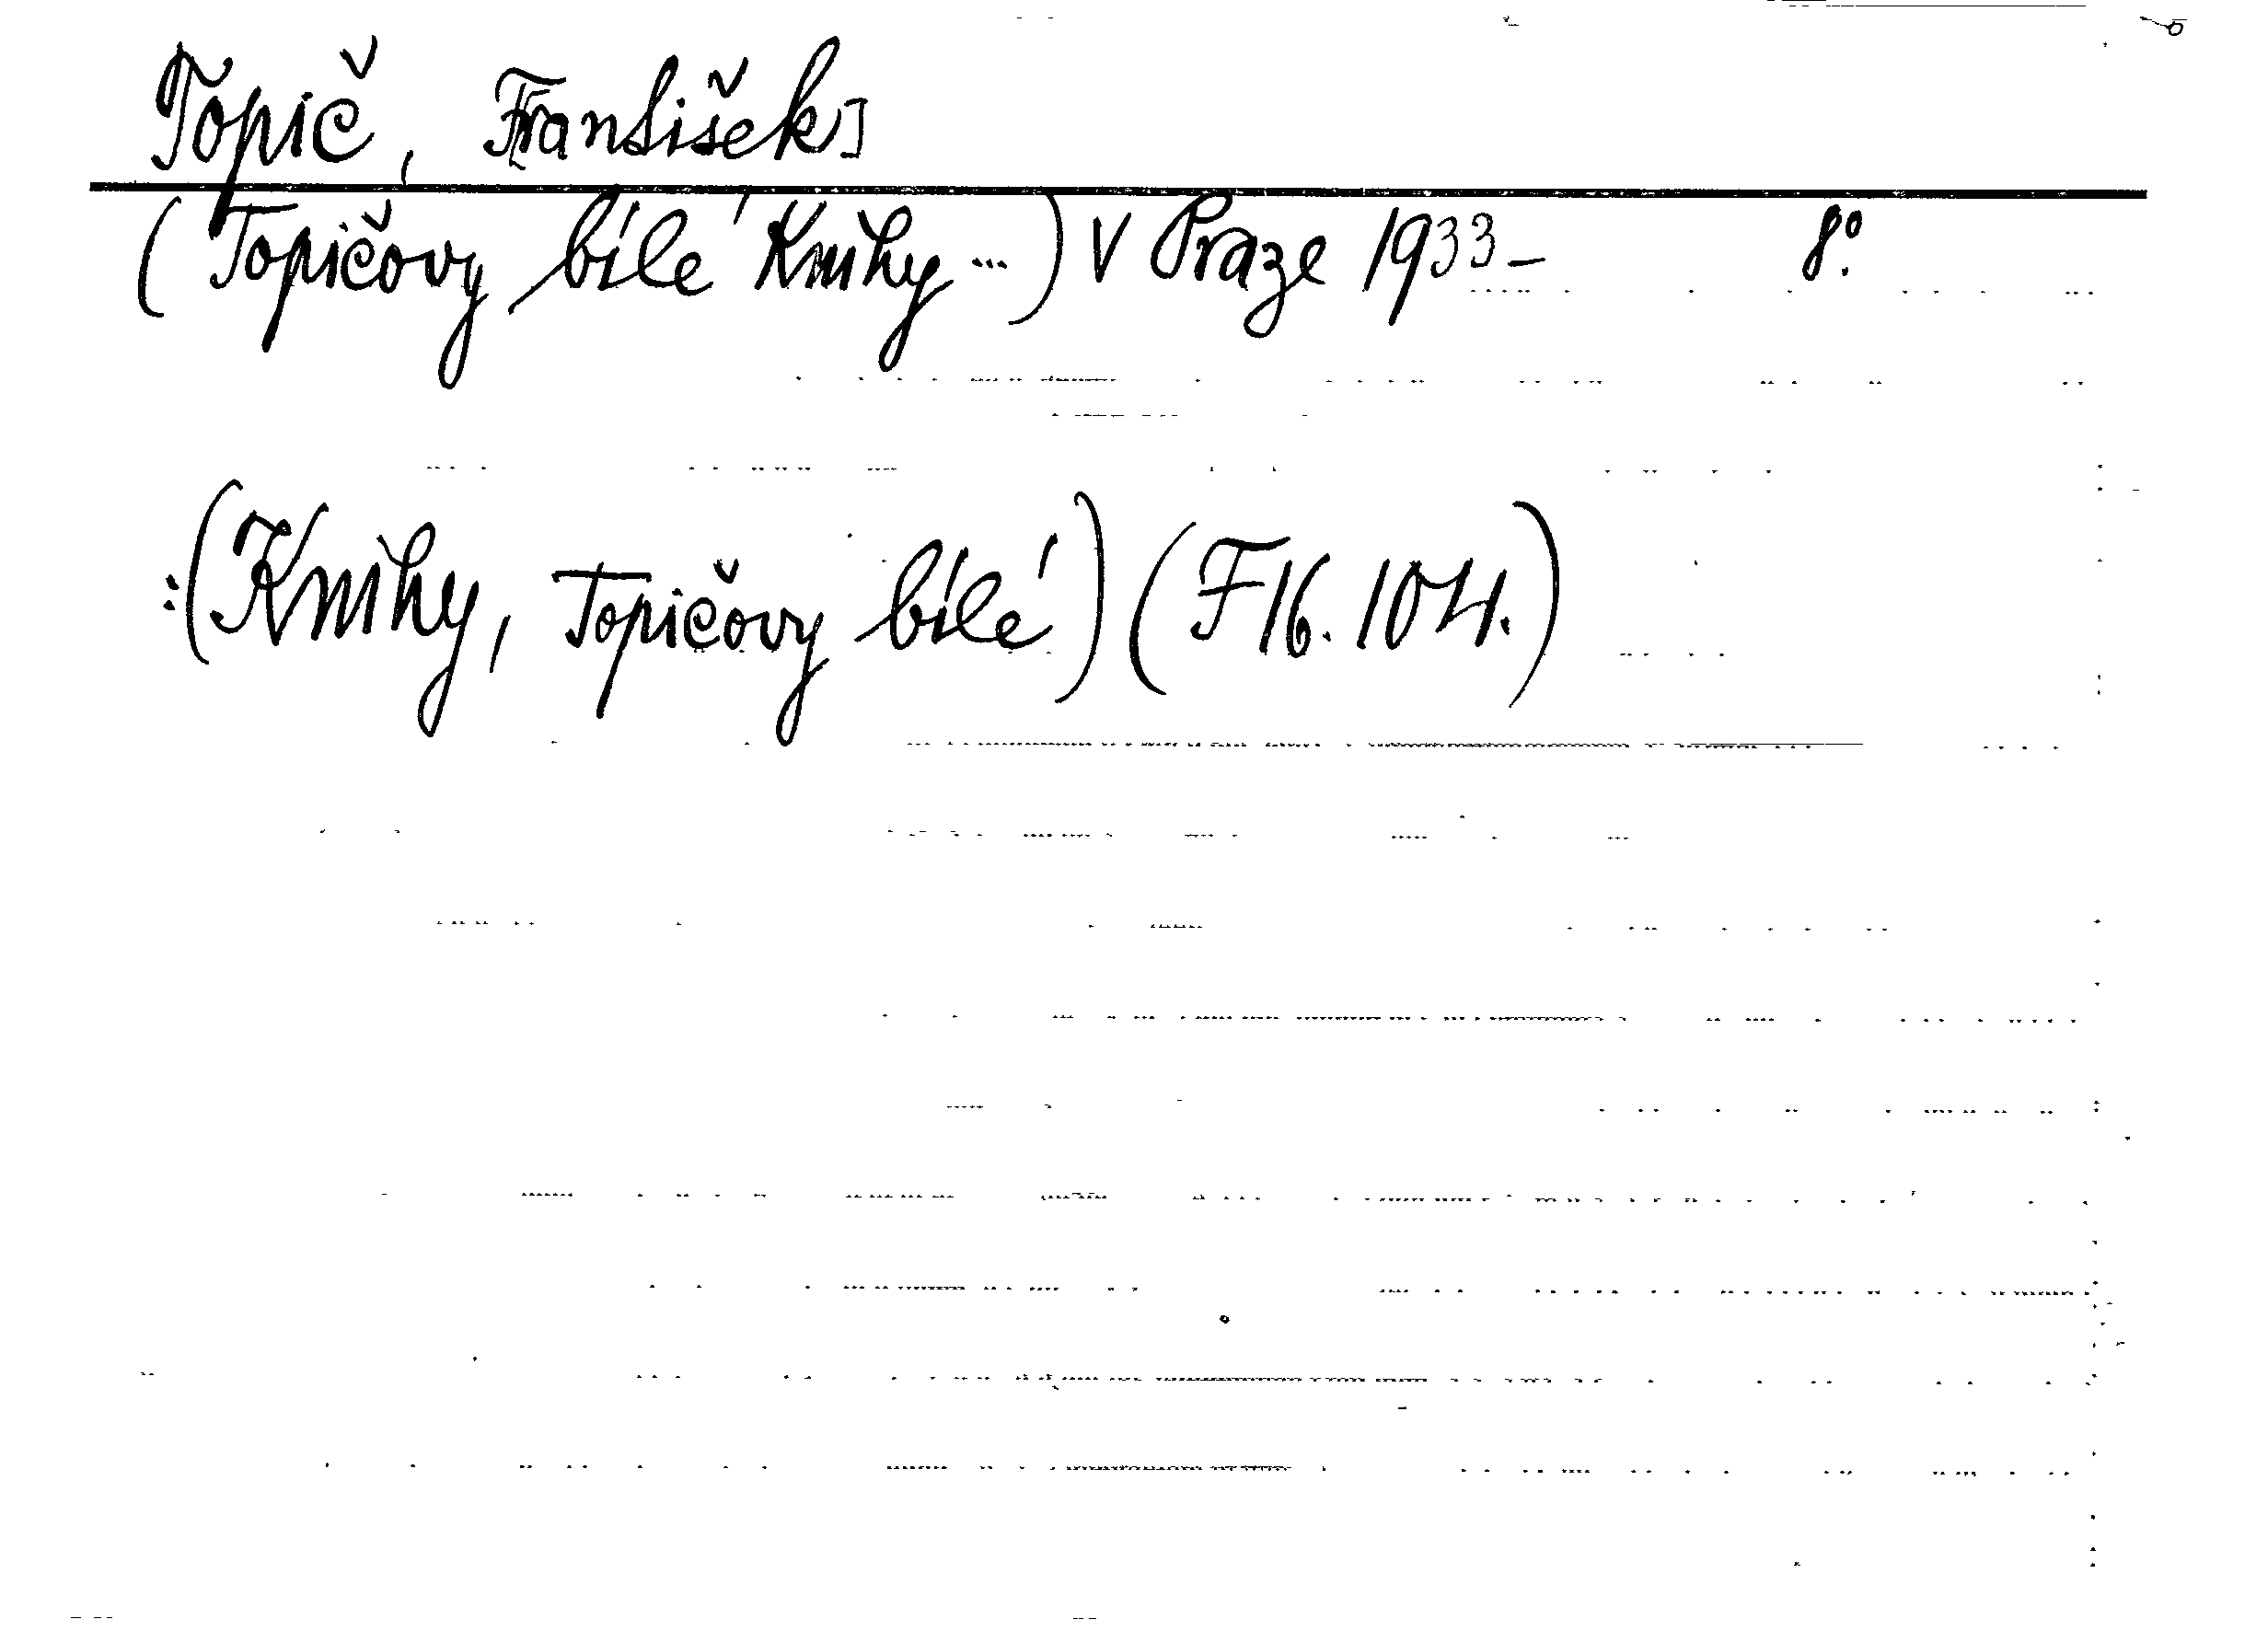 Topič, F[rantišek]
(Topičovy bílé Knihy...) V Praze 1933– 8°.
:(Knihy, Topičovy bílé) (F16.104.)